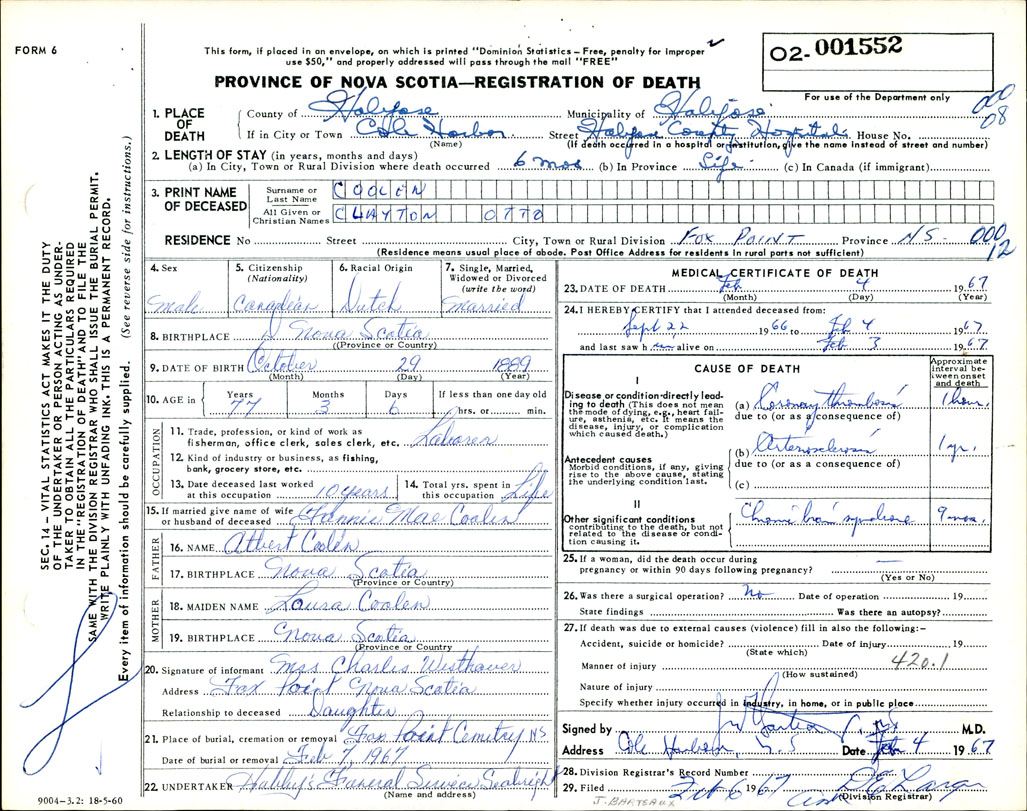 FORM 6
This form, if placed in an envelope, on which is printed "Dominion Statistics – Free, penalty for improper
use $50," and properly addressed will pass through the mail "FREE"
PROVINCE OF NOVA SCOTIA—REGISTRATION OF DEATH
02-001552
For use of the Department only
000
08
1. PLACE OF DEATH
County of Halifax Municipality of Halifax
If in City or Town Cole Harbor Street Halifax County Hospital House No.
(Name) (If death occurred in a hospital or institution, give the name instead of street and number)
2. LENGTH OF STAY (in years, months and days)
(a) In City, Town or Rural Division where death occurred 6 mos (b) In Province Life (c) In Canada (if immigrant)
3. PRINT NAME OF DECEASED
Surname or Last Name COOLEN
All Given or Christian Names CLAYTON OTTO
RESIDENCE No Street City, Town or Rural Division FOX POINT Province N S- 000
12
(Residence means usual place of abode. Post Office Address for residents in rural parts not sufficient)
4. Sex Male
5. Citizenship (Nationality) Canadian
6. Racial Origin Dutch
7. Single, Married, Widowed or Divorced (write the word) Married
8. BIRTHPLACE Nova Scotia
(Province or Country)
9. DATE OF BIRTH October 29 1889
(Month) (Day) (Year)
10. AGE in Years 77 Months 3 Days 6 If less than one day old
hrs. or min.
OCCUPATION
11. Trade, profession, or kind of work as
fisherman, office clerk, sales clerk, etc. Laborer
12. Kind of industry or business, as fishing,
bank, grocery store, etc.
13. Date deceased last worked at this occupation 10 years
14. Total yrs. spent in this occupation Life
15. If married give name of wife
or husband of deceased Fannie Mae Coolen
FATHER
16. NAME Albert Coolen
17. BIRTHPLACE Nova Scotia
(Province or Country)
MOTHER
18. MAIDEN NAME Laura Coolen
19. BIRTHPLACE Nova Scotia
(Province or Country)
20. Signature of informant Mrs. Charles Westhaver
Address Fox Point Nova Scotia
Relationship to deceased Daughter
21. Place of burial, cremation or removal Fox Point Cemetry N.S
Date of burial or removal Feb 7, 1967
22. UNDERTAKER Funeral Service Seabright
(Name and address)
9004-3.2: 18-5-60
MEDICAL CERTIFICATE OF DEATH
23. DATE OF DEATH Feb 4 1967
(Month) (Day) (Year)
24. I HEREBY CERTIFY that I attended deceased from:
Sept 22 1966 to Feb 4 1967
and last saw him alive on Feb. 3 1967
CAUSE OF DEATH
Approximate interval between onset and death
I
Disease or condition directly leading to death (This does not mean
the mode of dying, e.g., heart failure, asthenia, etc. It means the
disease, injury, or complication
which caused death.)
(a) Coronary thrombosis 1 hour.
due to (or as a consequence of)
Antecedent causes
Morbid conditions, if any, giving
rise to the above cause, stating
the underlying condition last.
(b) Arteriosclerosis 1 yr.
due to (or as a consequence of)
(c)
II
Other significant conditions
contributing to the death, but not
related to the disease or condition causing it.
Chronic brain syndrome 9 mos.
25. If a woman, did the death occur during
pregnancy or within 90 days following pregnancy? —
(Yes or No)
26. Was there a surgical operation? No Date of operation 19
State findings Was there an autopsy?
27. If death was due to external causes (violence) fill in also the following:–
Accident, suicide or homicide? Date of injury 19
(State which)
Manner of injury 420.1
(How sustained)
Nature of injury
Specify whether injury occurred in industry, in home, or in public place
Signed by M.D.
Address Cole Harbour, N.S Date Feb 4 1967
28. Division Registrar's Record Number
29. Filed Feb 6 1967
(Division Registrar)
J. BARTEAUX
SEC. 14 – VITAL STATISTICS ACT MAKES IT THE DUTY
OF THE UNDERTAKER OR PERSON ACTING AS UNDERTAKER TO OBTAIN ALL THE PARTICULARS REQUIRED
IN THE "REGISTRATION OF DEATH" AND TO FILE THE
SAME WITH THE DIVISION REGISTRAR WHO SHALL ISSUE THE BURIAL PERMIT.
WRITE PLAINLY WITH UNFADING INK. THIS IS A PERMANENT RECORD.
Every item of information should be carefully supplied. (See reverse side for instructions.)